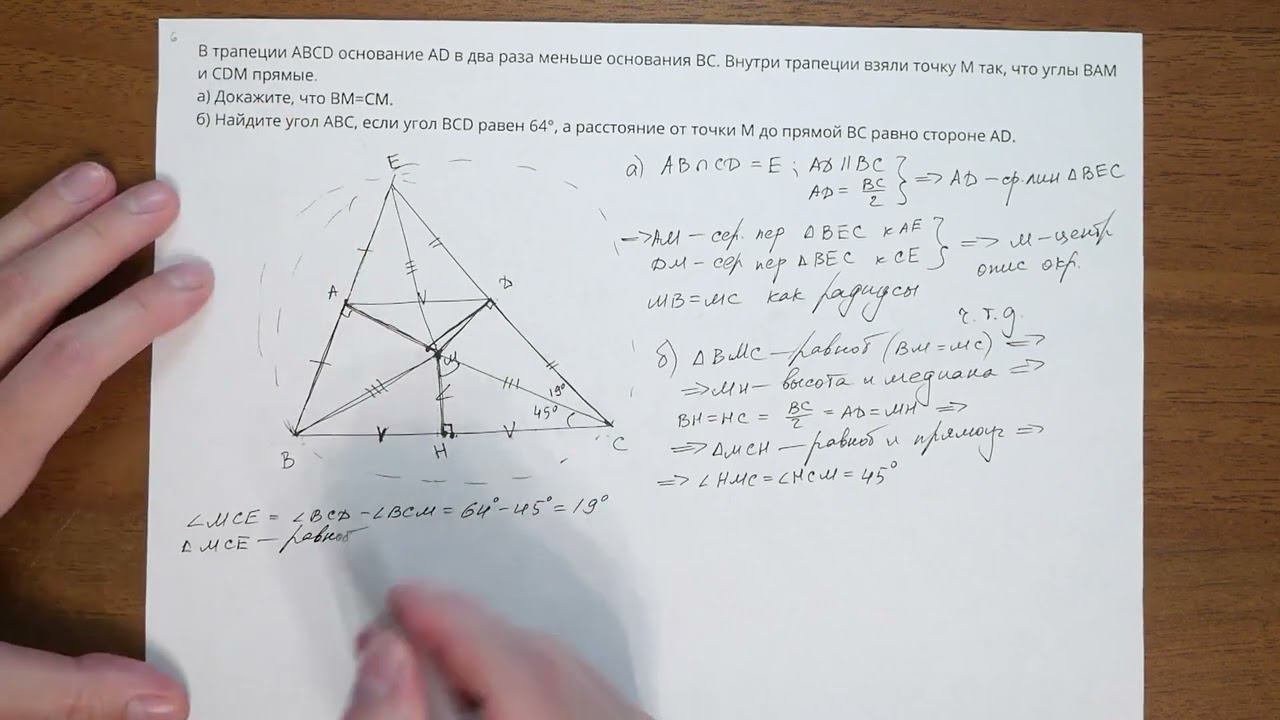 6
В трапеции ABCD основание AD в два раза меньше основания BC. Внутри трапеции взяли точку M так, что углы BAM
и CDM прямые.
а) Докажите, что BM=CM.
б) Найдите угол ABC, если угол BCD равен 64°, а расстояние от точки M до прямой BC равно стороне AD.
E
A
D
M
19°
45°
B
H
C
а) AB∩CD = E ; AD || BC
AD = BC/2 } => AD – ср. лин ΔBEC
=> AM – сер. пер ΔBEC к AE
DM – сер пер ΔBEC к CE } => M – центр
опис окр.
MB = MC как радиусы
ч.т.д.
б) ΔBMC – равноб (BM = MC) =>
=> MH – высота и медиана =>
BH = HC = BC/2 = AD = MH =>
=> ΔMCH – равноб и прямоуг =>
=> ∠HMC = ∠HCM = 45°
∠MCE = ∠BCD – ∠BCM = 64° – 45° = 19°
ΔMCE – равноб